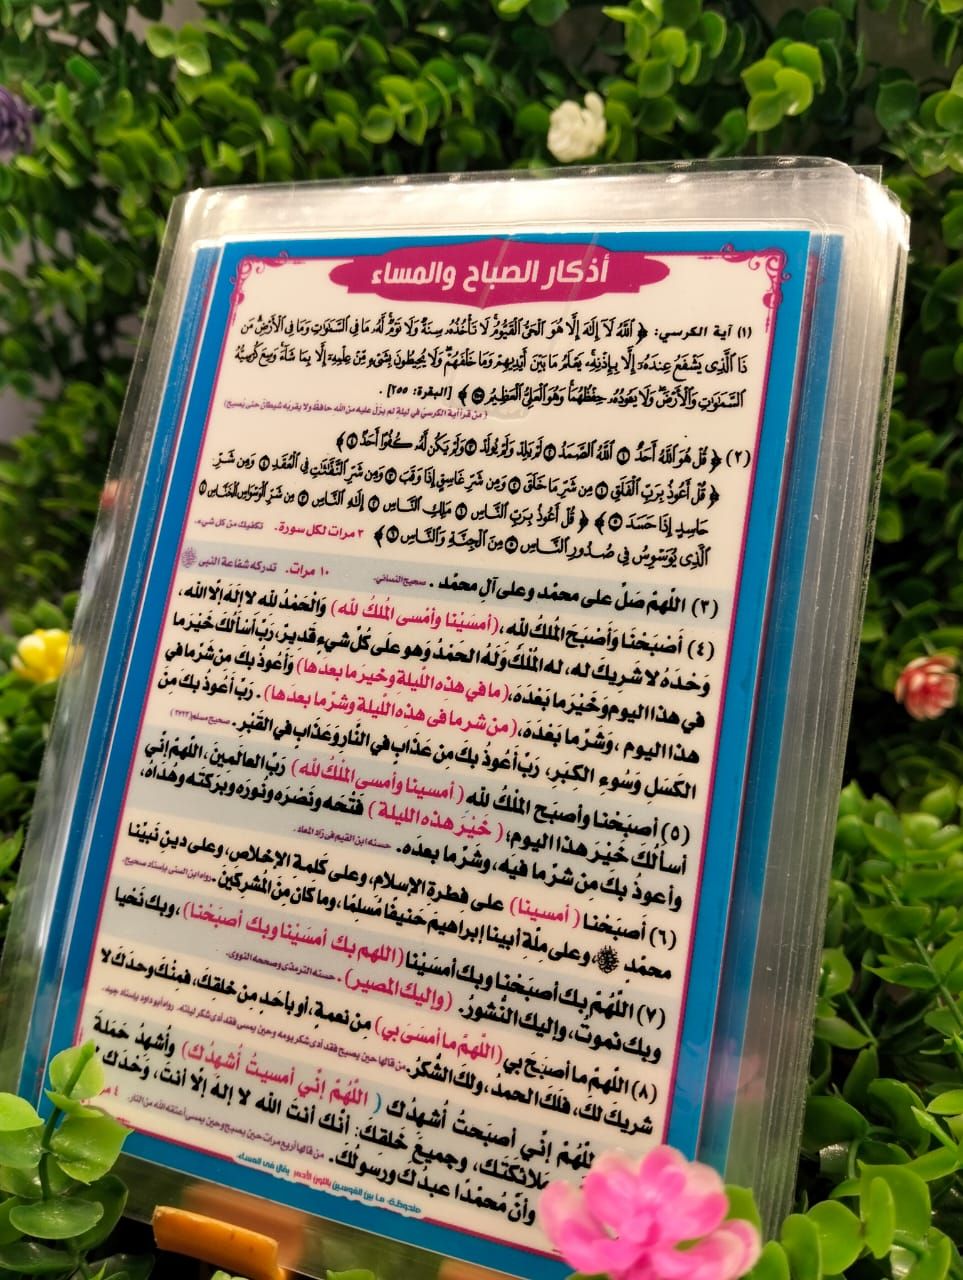 أذكار الصباح والمساء
(١) آية الكرسي: ﴿ ٱللَّهُ لَآ إِلَٰهَ إِلَّا هُوَ ٱلْحَىُّ ٱلْقَيُّومُ لَا تَأْخُذُهُۥ سِنَةٌ وَلَا نَوْمٌ لَّهُۥ مَا فِى ٱلسَّمَٰوَٰتِ وَمَا فِى ٱلْأَرْضِ مَن
ذَا ٱلَّذِى يَشْفَعُ عِندَهُۥٓ إِلَّا بِإِذْنِهِۦ يَعْلَمُ مَا بَيْنَ أَيْدِيهِمْ وَمَا خَلْفَهُمْ وَلَا يُحِيطُونَ بِشَىْءٍ مِّنْ عِلْمِهِۦٓ إِلَّا بِمَا شَآءَ وَسِعَ كُرْسِيُّهُ
ٱلسَّمَٰوَٰتِ وَٱلْأَرْضَ وَلَا يَـُٔودُهُۥ حِفْظُهُمَا وَهُوَ ٱلْعَلِىُّ ٱلْعَظِيمُ ﴾ [البقرة: ٢٥٥].
( من قرأ آية الكرسيّ في ليلةٍ لم يزل عليه من الله حافظ ولا يقربه شيطان حتى يصبح)
(٢) ﴿ قُلْ هُوَ ٱللَّهُ أَحَدٌ ١ ٱللَّهُ ٱلصَّمَدُ ٢ لَمْ يَلِدْ وَلَمْ يُولَدْ ٣ وَلَمْ يَكُن لَّهُۥ كُفُوًا أَحَدٌۢ ٤ ﴾
﴿ قُلْ أَعُوذُ بِرَبِّ ٱلْفَلَقِ ١ مِن شَرِّ مَا خَلَقَ ٢ وَمِن شَرِّ غَاسِقٍ إِذَا وَقَبَ ٣ وَمِن شَرِّ ٱلنَّفَّٰثَٰتِ فِى ٱلْعُقَدِ ٤ وَمِن شَرِّ
حَاسِدٍ إِذَا حَسَدَ ٥ ﴾ ﴿ قُلْ أَعُوذُ بِرَبِّ ٱلنَّاسِ ١ مَلِكِ ٱلنَّاسِ ٢ إِلَٰهِ ٱلنَّاسِ ٣ مِن شَرِّ ٱلْوَسْوَاسِ ٱلْخَنَّاسِ ٤
ٱلَّذِى يُوَسْوِسُ فِى صُدُورِ ٱلنَّاسِ ٥ مِنَ ٱلْجِنَّةِ وَٱلنَّاسِ ٦ ﴾ ٣ مرات لكل سورة. تكفيك من كل شيء.
(٣) اللَّهمّ صَلّ على محمّد وعلى آلِ محمّد . صحيح النسائي. ١٠ مرات. تدركه شفاعة النبي ﷺ
(٤) أصْبَحْنَا وَأَصْبَحَ المُلْكُ للهِ، (أمْسَيْنا وأمْسى المُلكُ لله) وَالْحَمْدُ لله لا إلَهَ إلَّا الله،
وَحْدَهُ لا شَرِيكَ له، له المُلْكُ وَلَهُ الحَمْدُ وَهو على كُلّ شيءٍ قَدِيرٌ، رَبّ أسْألُكَ خَيْرَ ما
في هذا اليومِ وَخَيْرَ ما بَعْدَهَ، (ما في هذه اللّيلةِ وخيرَ ما بعدها) وَأَعُوذُ بكَ من شَرّ ما في
هذا اليوم ،وَشَرّ ما بَعْدَهُ، (من شر ما فى هذه اللّيلة وشرّ ما بعدها) . رَبّ أعُوذُ بكَ مِنَ
الكَسَلِ وَسُوءِ الكِبَرِ، رَبّ أعُوذُ بكَ مِن عَذَابٍ في النَّارِ وَعَذَابٍ في القَبْرِ. صحيح مسلم (٢٧٢٣)
(٥) أصبَحْنا وأصبَح المُلْكُ لله (أمسينا وأمسى المُلْكُ لله) رَبِّ العالَمينَ، اللّهمّ إنّي
أسألُكَ خَيْرَ هذا اليومِ؛ (خَيْرَ هذه الليلة) فَتْحَه ونَصْرَه ونُورَه وبَرَكتَه وهُدَاهُ،
وأعوذُ بكَ مِن شَرّ ما فيه، وشَرّ ما بعدَه. حسنه ابن القيم في زاد المعاد.
(٦) أصبَحْنا (أمسينا) على فطرةِ الإسلامِ، وعلى كَلِمةِ الإخلاصِ، وعلى دينِ نَبيِّنا
محمّد ﷺ، وعلى مِلّةِ أبينا إبراهيمَ حَنيفًا مُسلِمًا، وما كان مِنَ المُشركينَ. رواه ابن السنى بإسناد صحيح.
(٧) اللَّهُمّ بك أصبَحْنا وبك أمسَيْنا (اللهم بك أمسَيْنا وبك أصبَحْنا) ،وبك نَحْيا
وبك نموتُ، وإليك النُّشورُ. (وإليك المصير). حسنه الترمذى وصححه النووى.
(٨) اللَّهُمّ ما أصبَحَ بي (اللَّهُمّ ما أمسَى بي) مِن نعمةٍ، أو بأحَدٍ مِن خلقِكَ، فمِنْكَ وحدَكَ لا
شريكَ لكَ، فلَكَ الحمدُ، ولكَ الشُّكْرُ. من قالها حين يصبح فقد أدى شكر يومه وحين يمسى فقد أدى شكر ليلته. رواه أبو داود بإسناد جيد.
للَّهُمّ إنِّي أصبَحتُ أُشهِدُك ( اللَّهُمّ إنِّي أمسيتُ أُشهِدُك) وأُشهِدُ حَمَلةَ
مَلائكَتَك، وجميعَ خَلقِك: أنَّك أنتَ الله لا إلهَ إلَّا أنتَ، وَحْدَك
وأنّ مُحمّدًا عبدُك ورسولُك. من قالها أربع مرات حين يصبح وحين يمسي أعتقه الله من النار. ٤
ملحوظة: ما بين القوسين باللون الأحمر يقال فى المساء.